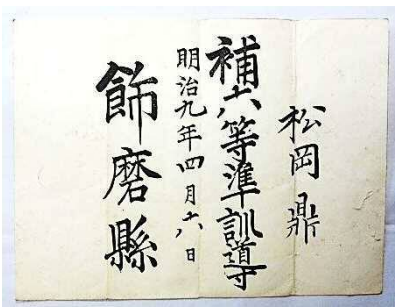 松岡鼎
補六等準訓導
明治九年四月六日
飾磨縣